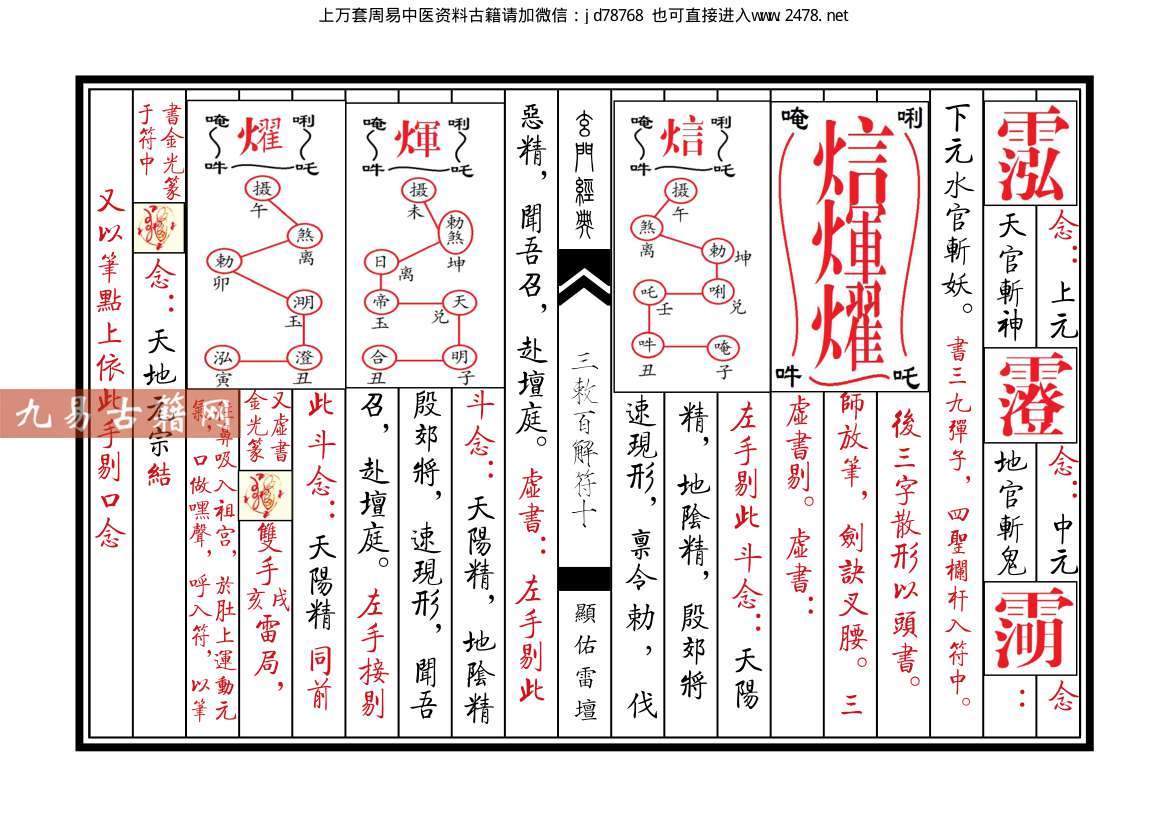 上万套周易中医资料古籍请加微信：jd78768 也可直接进入www.2478.net
念：上元
念：中元
念
天官斬神
地官斬鬼
：
下元水官斬妖。書三九彈子，四聖欄杆入符中。
唵 唎
吽 吒
後三字散形以頭書。
師放筆，劍訣叉腰。三
虛書剔。虛書：
左手剔此斗念：天陽
精，地陰精，殷郊將
速現形，禀令勅，伐
唵 唎
吽 吒
摄
午
煞
离
勅
坤
唎
兑
吒
壬
吽
丑
唵
子
玄門經典
三敕百解符十
顯佑雷壇
惡精，聞吾召，赴壇庭。虛書：左手剔此
斗念：天陽精，地陰精
殷郊將，速現形，聞吾
召，赴壇庭。左手接剔
唵 煇 唎
吽 吒
摄
未
勅煞
坤
日
离
帝
玉
天
兑
合
丑
明
子
此斗念：天陽精同前
又虛書
金光篆
雙手
戌
亥
雷局，
鼻吸入祖宫，於肚上運動元
氣，口做嘿聲，呼入符，以筆
唵 燿 唎
吽 吒
摄
午
煞
离
勅
卯
玉
泓
寅
澄
丑
書金光篆
于符中
念：天地元宗結
又以筆點上依此手剔口念
九易古籍网